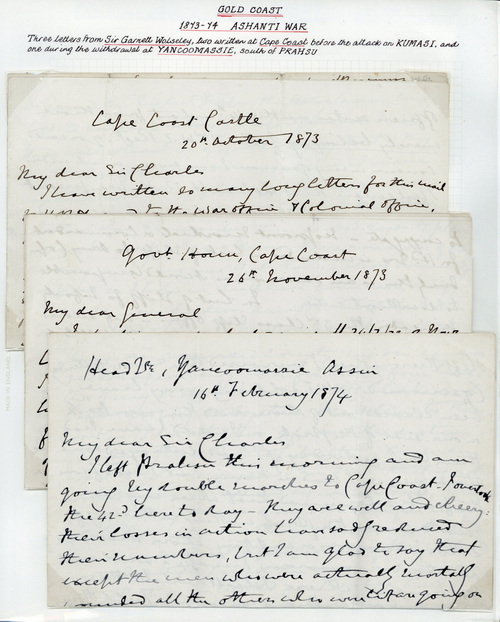 GOLD COAST
1873-74 ASHANTI WAR
Three letters from Sir Garnett Wolseley, two written at Cape Coast before the attack on KUMASI, and
one during the withdrawal at YANCOOMASSIE, south of PRAHSU
Cape Coast Castle
20th October 1873
My dear Sir Charles
I have written so many long letters for this mail
to the War office & Colonial office,
Govt House, Cape Coast
26th November 1873
My dear General
Head Qrs, Yancoomassie Assin
16th February 1874
My dear Sir Charles
I left Prahsu this morning and am
going by double marches to Cape Coast. I overtook
the 42d here to day - They are well and cheery:
their losses in action have sadly reduced
their numbers, but I am glad to say that
except the men who were actually mortally
wounded all the others who went are going on
MADE IN ENGLAND